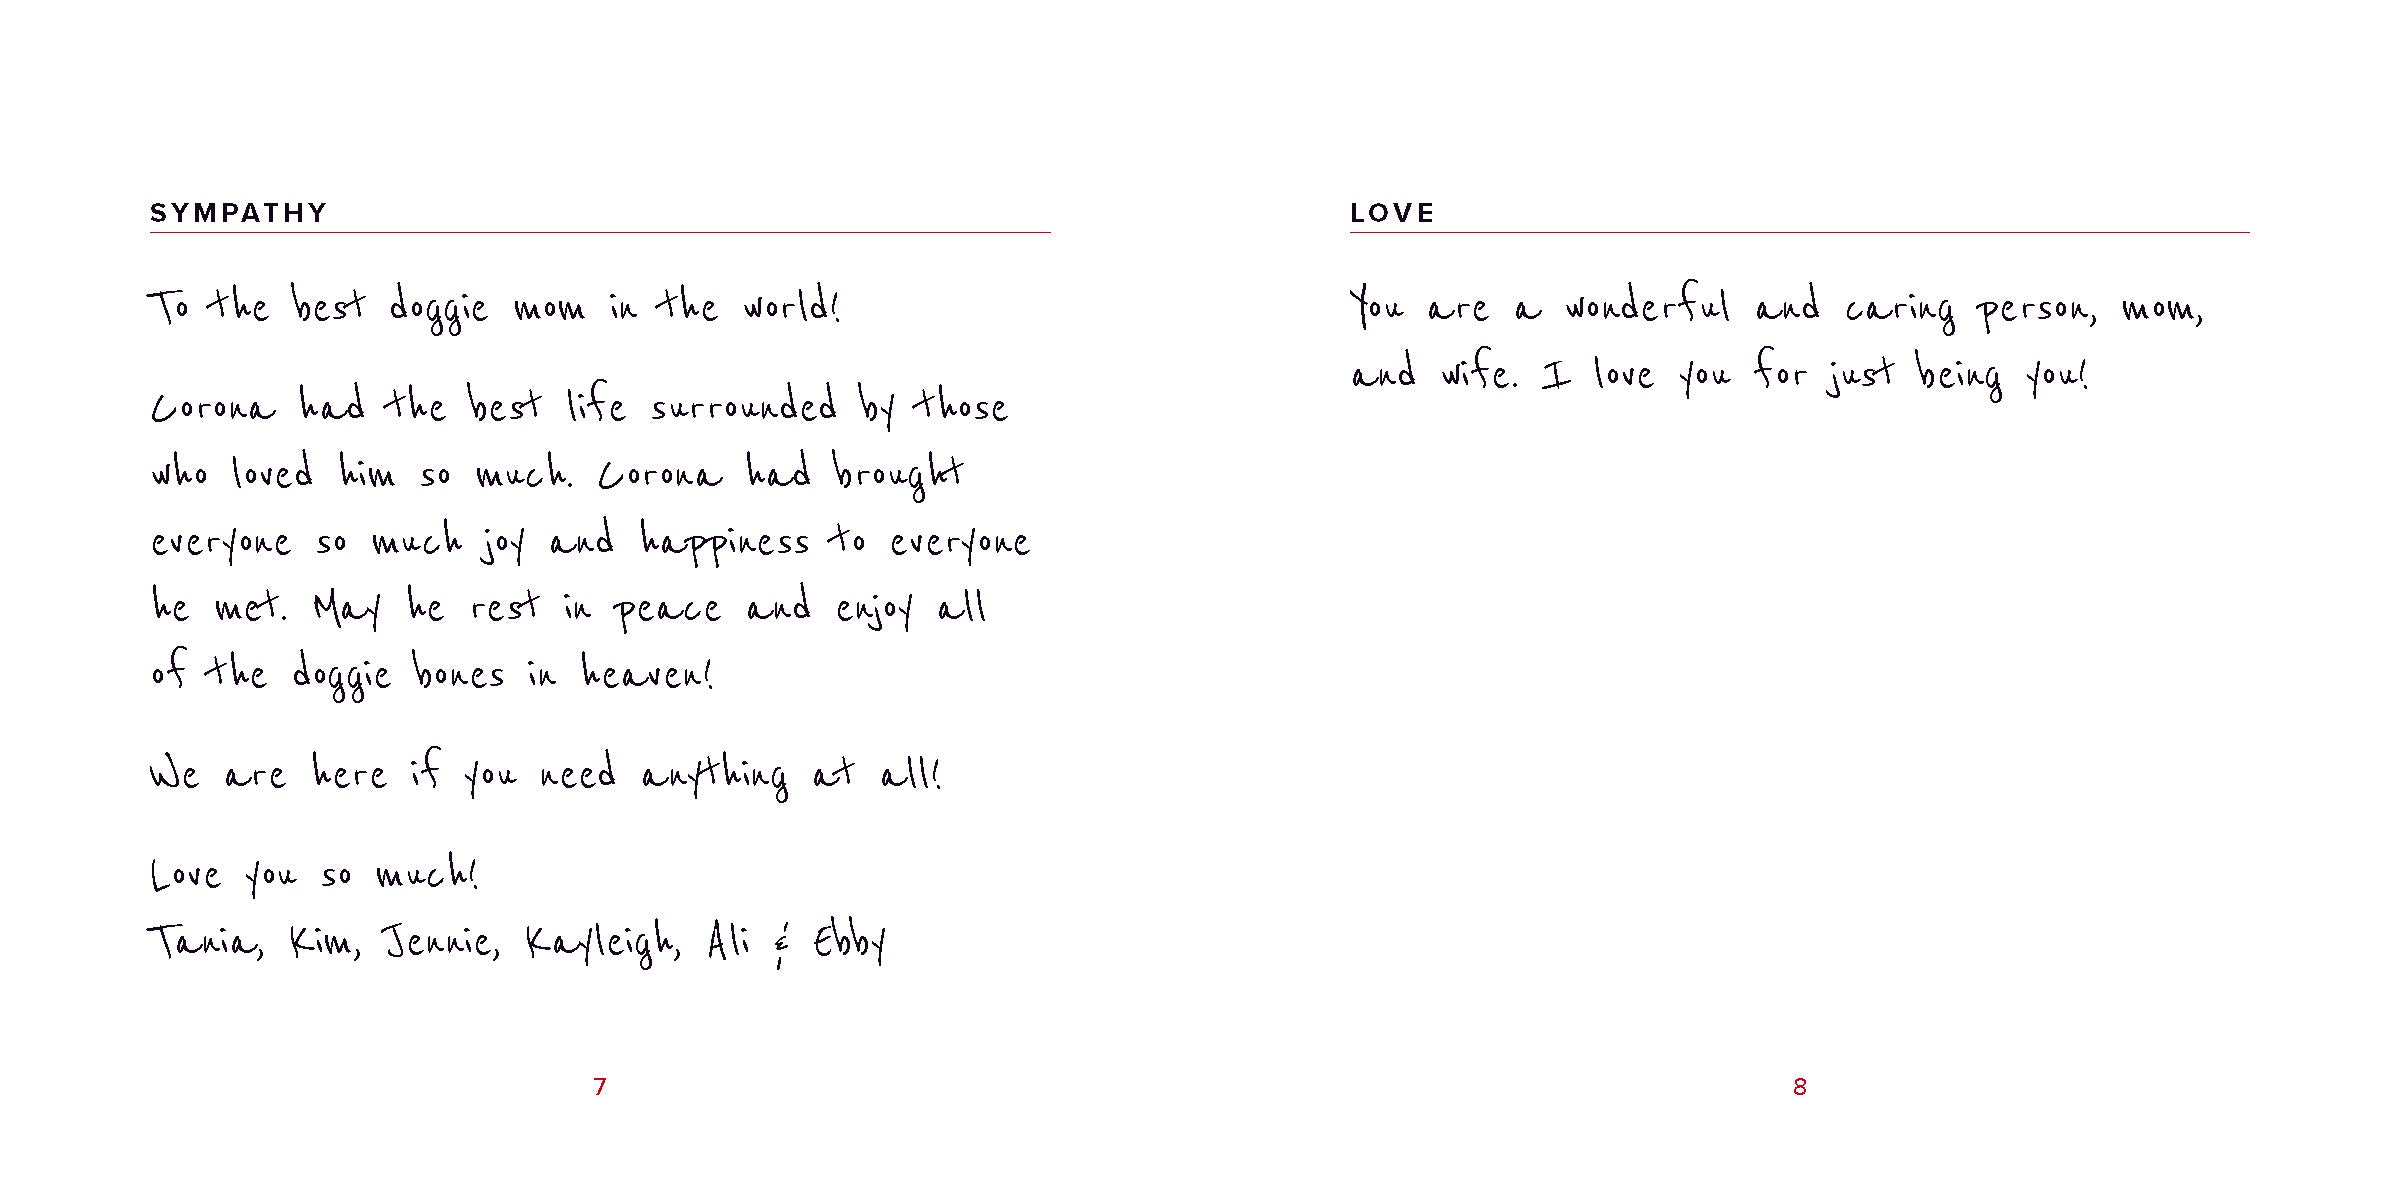 SYMPATHY
To the best doggie mom in the world!
Corona had the best life surrounded by those
who loved him so much. Corona had brought
everyone so much joy and happiness to everyone
he met. May he rest in peace and enjoy all
of the doggie bones in heaven!
We are here if you need anything at all!
Love you so much!
Tania, Kim, Jennie, Kayleigh, Ali & Ebby
7
LOVE
You are a wonderful and caring person, mom,
and wife. I love you for just being you!
8